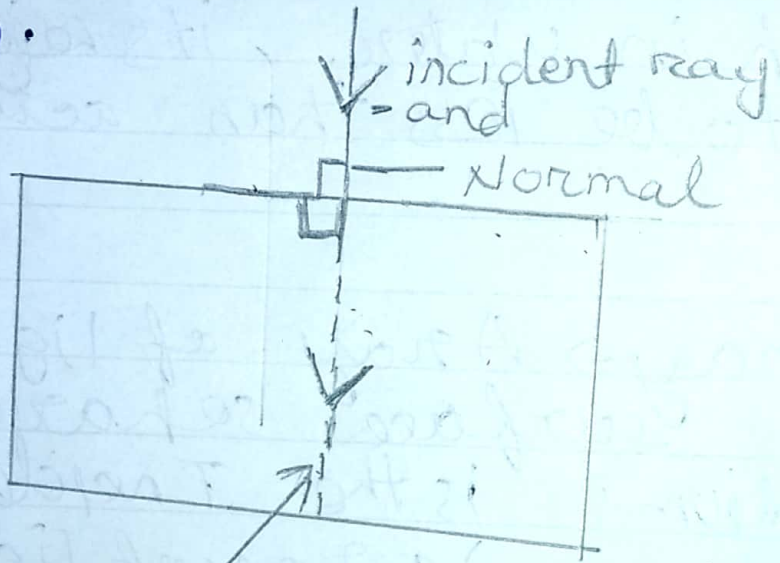 incident ray
=and
Normal